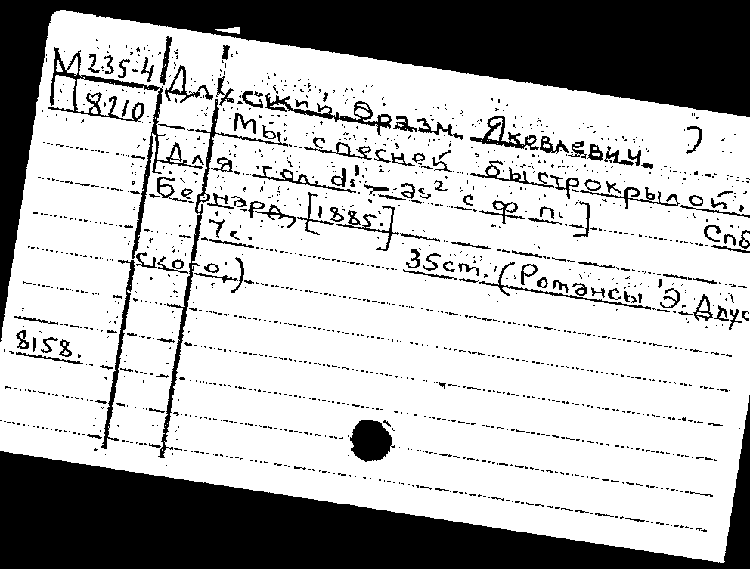 М 235-4
П 8210
Длусский, Эразм Яковлевич.
Мы с песней быстрокрылой.
[Для гол. dis¹–as² с ф п.] Спб
Бернард, [1885.]
7 с. 35 ст. (Романсы Э. Длус
ского,).
8158.